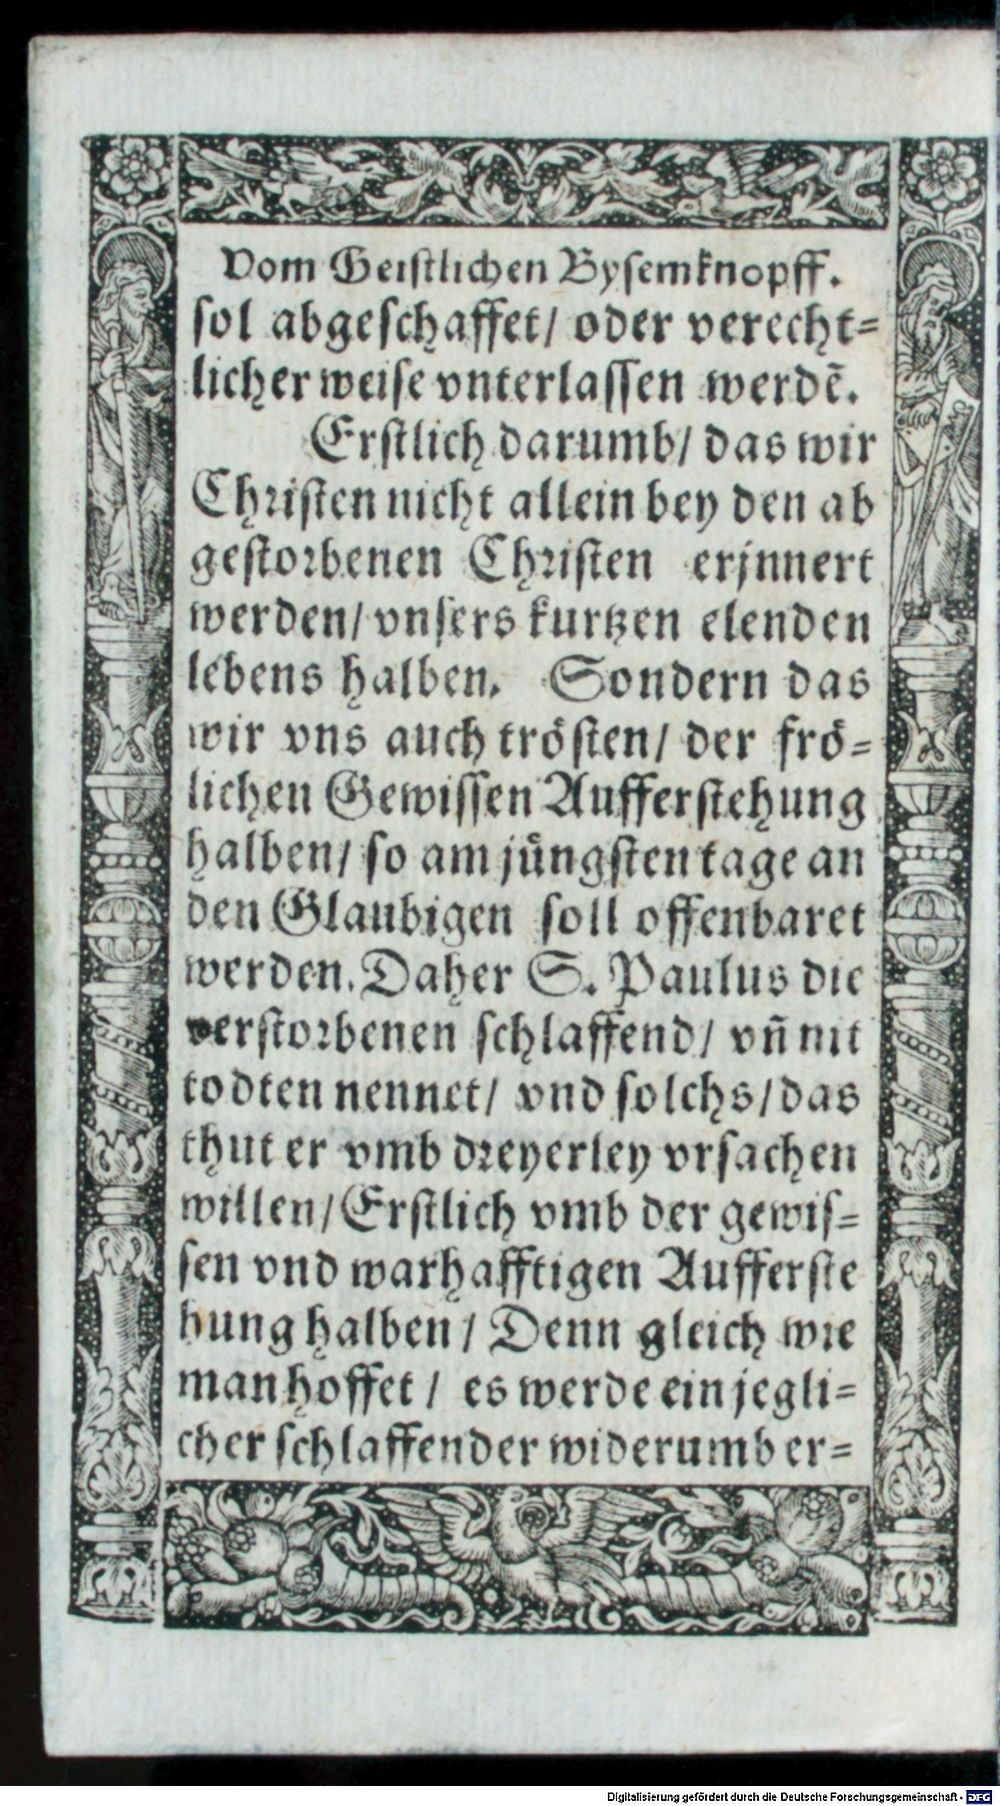 Vom Geistlichen Bysemknopff.
sol abgeschaffet/ oder verecht=
licher weise vnterlassen werdẽ.
Erstlich darumb/ das wir
Christen nicht allein bey den ab
gestorbenen Christen erjnnert
werden/ vnsers kurtzen elenden
lebens halben. Sondern das
wir vns auch trösten/ der frö=
lichen Gewissen Aufferstehung
halben/ so am jüngsten tage an
den Glaubigen soll offenbaret
werden. Daher S. Paulus die
verstorbenen schlaffend/ vñ nit
todten nennet/ vnd solchs/ das
thut er vmb dreyerley vrsachen
willen/ Erstlich vmb der gewis=
sen vnd warhafftigen Aufferste
hung halben/ Denn gleich wie
man hoffet/ es werde ein jegli=
cher schlaffender widerumb er=
Digitalisierung gefördert durch die Deutsche Forschungsgemeinschaft - DFG